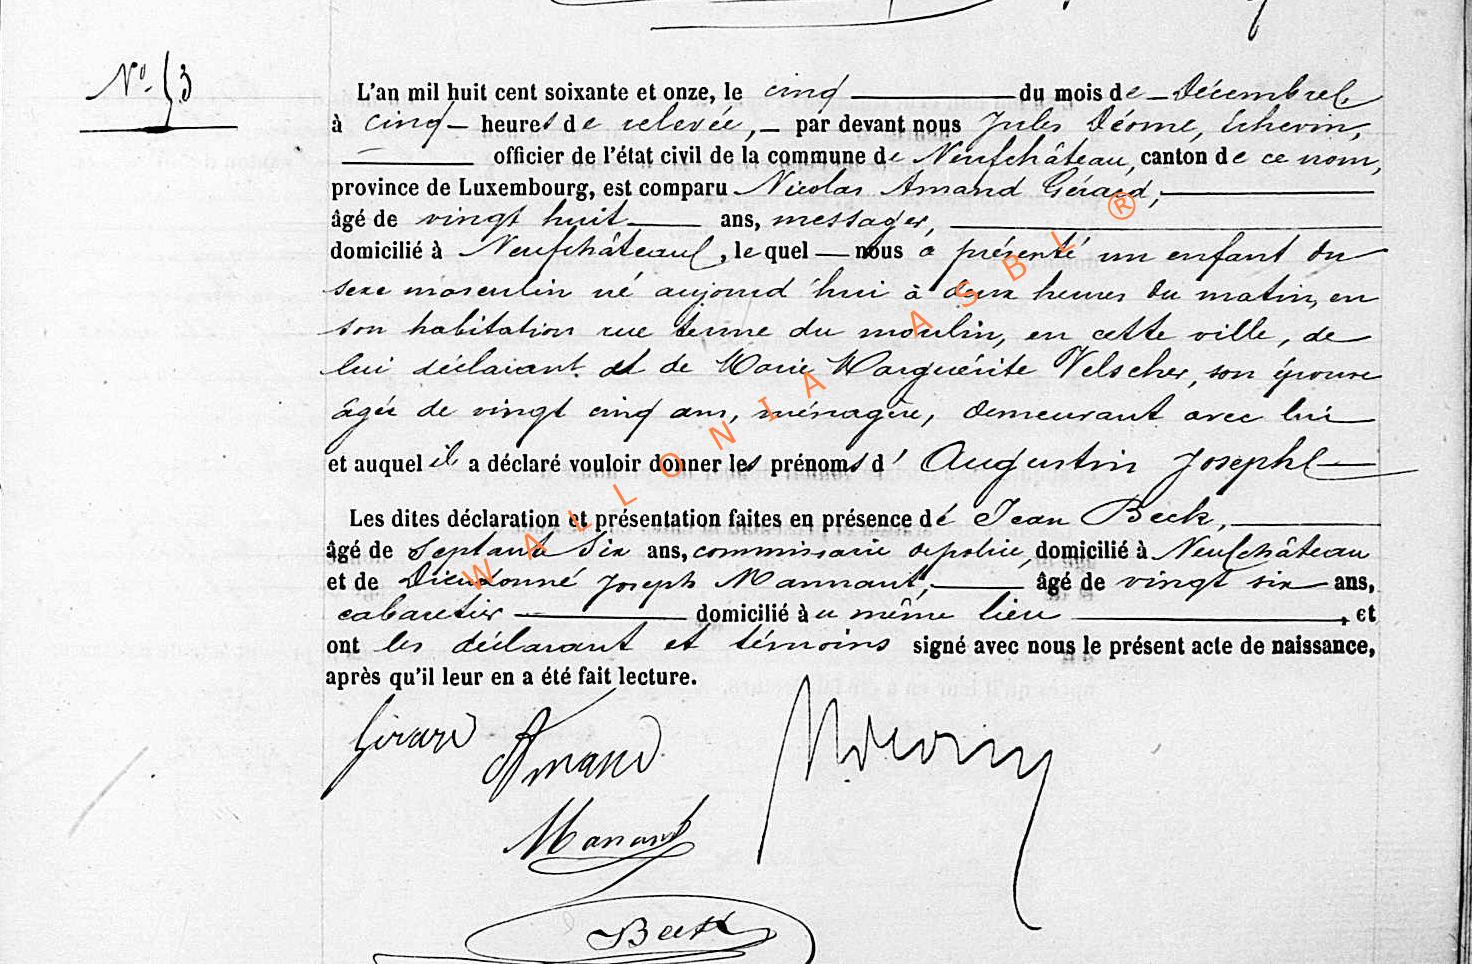 N° 53
L'an mil huit cent soixante et onze, le cinq du mois de Décembre,
à cinq heures de relevée, par devant nous Jules Déome, Echevin,
officier de l'état civil de la commune de Neufchâteau, canton de ce nom,
province de Luxembourg, est comparu Nicolas Amand Gérard,
âgé de vingt huit ans, messager,
domicilié à Neufchâteau, le quel nous a présenté un enfant du
sexe masculin né aujourd'hui à deux heures du matin, en
son habitation rue terme du moulin, en cette ville, de
lui déclarant et de Marie Marguérite Velscher, son épouse
âgée de vingt cinq ans, ménagère, demeurant avec lui
et auquel il a déclaré vouloir donner les prénoms d' Augustin Joseph
Les dites déclaration et présentation faites en présence de Jean Beck,
âgé de Septante Six ans, commissaire de police, domicilié à Neufchâteau
et de Dieudonné Joseph Mannant, âgé de vingt six ans,
cabaretier domicilié au même lieu, et
ont les déclarant et témoins signé avec nous le présent acte de naissance,
après qu'il leur en a été fait lecture.
Girard Amand
Manand
Beck
WALLONIA ASBL ®